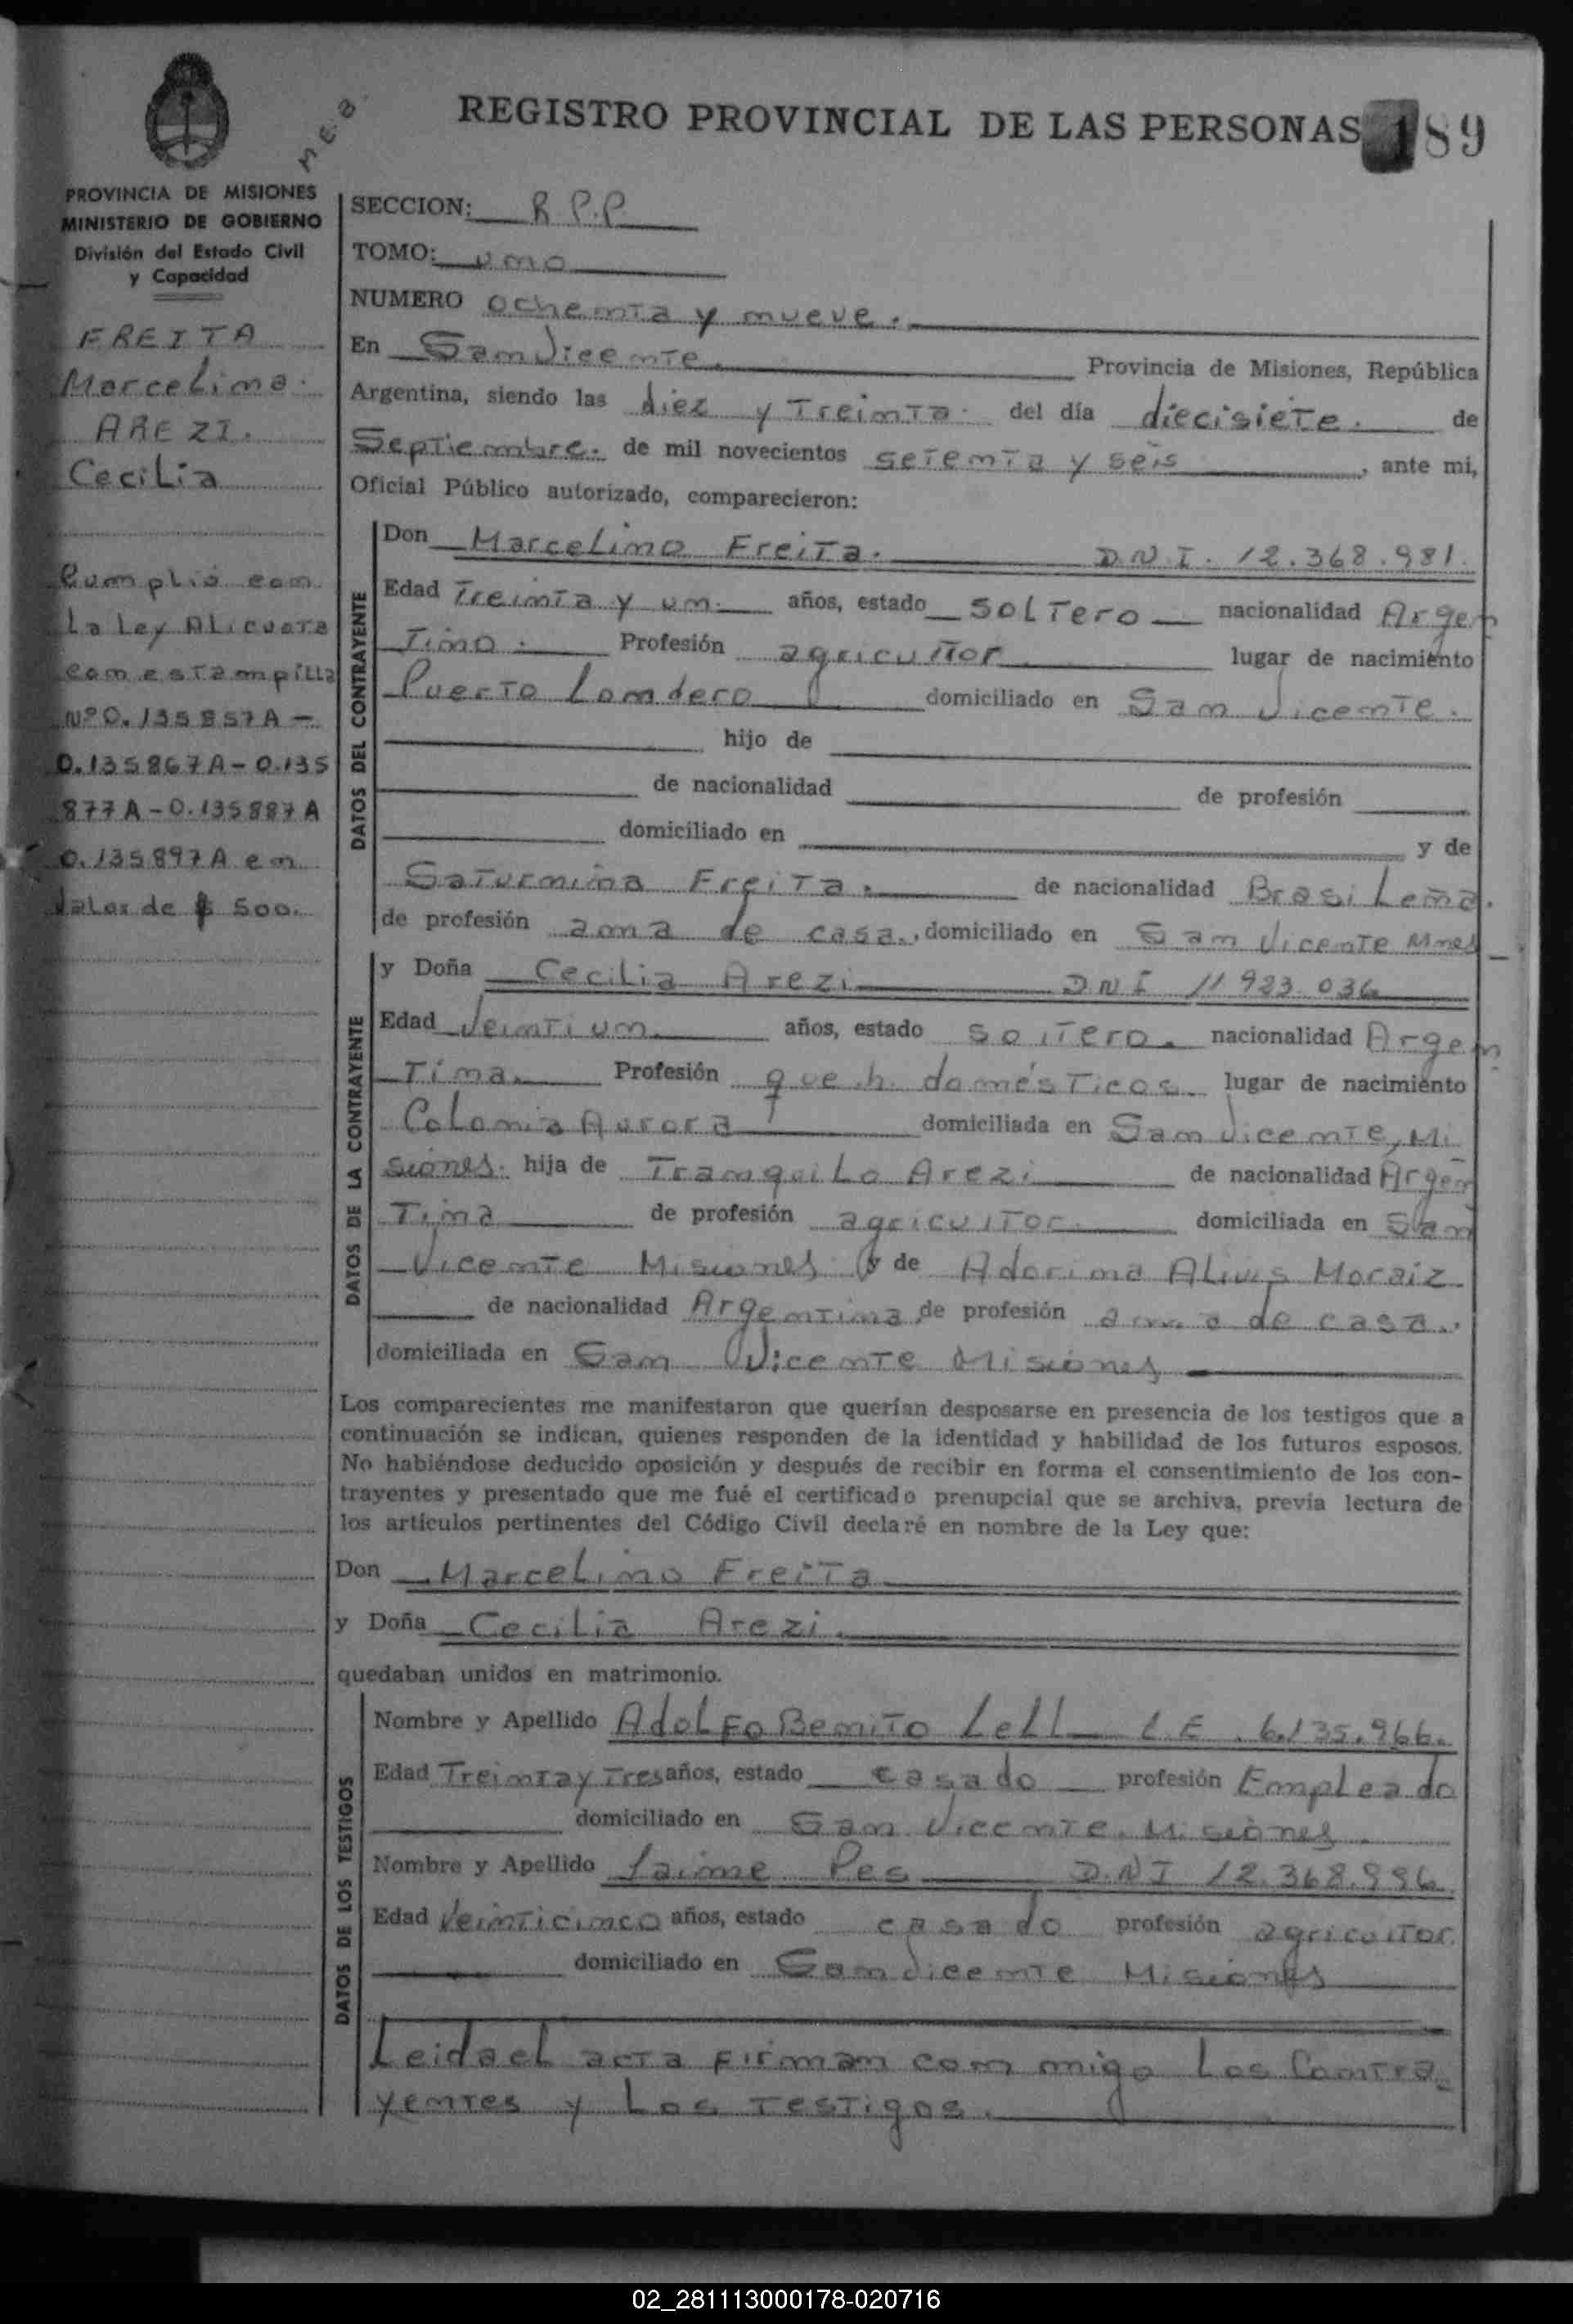 M.E.B.
REGISTRO PROVINCIAL DE LAS PERSONAS 189
PROVINCIA DE MISIONES
MINISTERIO DE GOBIERNO
División del Estado Civil
y Capacidad
FREITA
Marcelino.
AREZI.
Cecilia
Cumplió con
La Ley ALicuota
con estampilla
Nº 0.135857A -
0.135867A - 0.135
877A - 0.135887A
0.135897A en
Valor de $ 500.
SECCION: R.P.P.
TOMO: uno
NUMERO ochenta y nueve.
En San Vicente. Provincia de Misiones, República
Argentina, siendo las diez y Treinta. del día diecisiete. de
Septiembre. de mil novecientos setenta y seis, ante mi,
Oficial Público autorizado, comparecieron:
DATOS DEL CONTRAYENTE
Don Marcelino Freita. D.N.I. 12.368.981.
Edad Treinta y un. años, estado SOLTERO nacionalidad Argen
Tino. Profesión agricultor lugar de nacimiento
Puerto Londero domiciliado en San Vicente.
hijo de
de nacionalidad de profesión
domiciliado en y de
Saturnina Freita. de nacionalidad BrasiLeña.
de profesión ama de casa., domiciliado en San Vicente Mnes
DATOS DE LA CONTRAYENTE
y Doña Cecilia Arezi D N I 11 923 036
Edad Veintiun. años, estado soltero. nacionalidad Argen
Tina. Profesión que.h. domésticos. lugar de nacimiento
Colonia Aurora domiciliada en San Vicente, Mi
siones. hija de TranquiLo Arezi de nacionalidad Argen
Tina de profesión agricultor. domiciliada en San
Vicente Misiones y de Adorina ALivis Moraiz
de nacionalidad Argentina de profesión ama de casa.
domiciliada en San Vicente Misiones
Los comparecientes me manifestaron que querían desposarse en presencia de los testigos que a
continuación se indican, quienes responden de la identidad y habilidad de los futuros esposos.
No habiéndose deducido oposición y después de recibir en forma el consentimiento de los con-
trayentes y presentado que me fué el certificado prenupcial que se archiva, previa lectura de
los artículos pertinentes del Código Civil declaré en nombre de la Ley que:
Don Marcelino Freita
y Doña Cecilia Arezi.
quedaban unidos en matrimonio.
DATOS DE LOS TESTIGOS
Nombre y Apellido Adolfo Benito Lell L E . 6.135.966.
Edad Treinta y Tres años, estado casado profesión Empleado
domiciliado en San Vicente. Misiones.
Nombre y Apellido Jaime Pes D.N I 12.368.996
Edad Veinticinco años, estado casado profesión agricultor.
domiciliado en San Vicente Misiones
Leida eL acta firman con migo Los Contra-
yentes y Los Testigos.
02_281113000178-020716